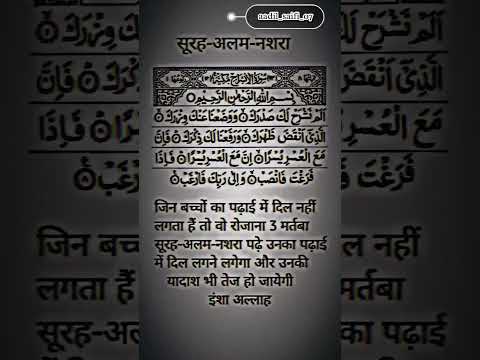 aadil_saifi_07
सूरह-अलम-नशरा
بِسْمِ اللهِ الرَّحْمٰنِ الرَّحِيْمِ
اَلَمْ نَشْرَحْ لَكَ صَدْرَكَ ۙ وَوَضَعْنَا عَنْكَ وِزْرَكَ ۙ
الَّذِيْٓ اَنْقَضَ ظَهْرَكَ ۙ وَرَفَعْنَا لَكَ ذِكْرَكَ ؕ فَاِنَّ
مَعَ الْعُسْرِ يُسْرًا ۙ اِنَّ مَعَ الْعُسْرِ يُسْرًا ؕ فَاِذَا
فَرَغْتَ فَانْصَبْ ۙ وَاِلٰى رَبِّكَ فَارْغَبْ
जिन बच्चों का पढ़ाई में दिल नहीं
लगता हैं तो वो रोजाना 3 मर्तबा
सूरह-अलम-नशरा पढ़े उनका पढ़ाई
में दिल लगने लगेगा और उनकी
यादाश भी तेज हो जायेगी
इंशा अल्लाह